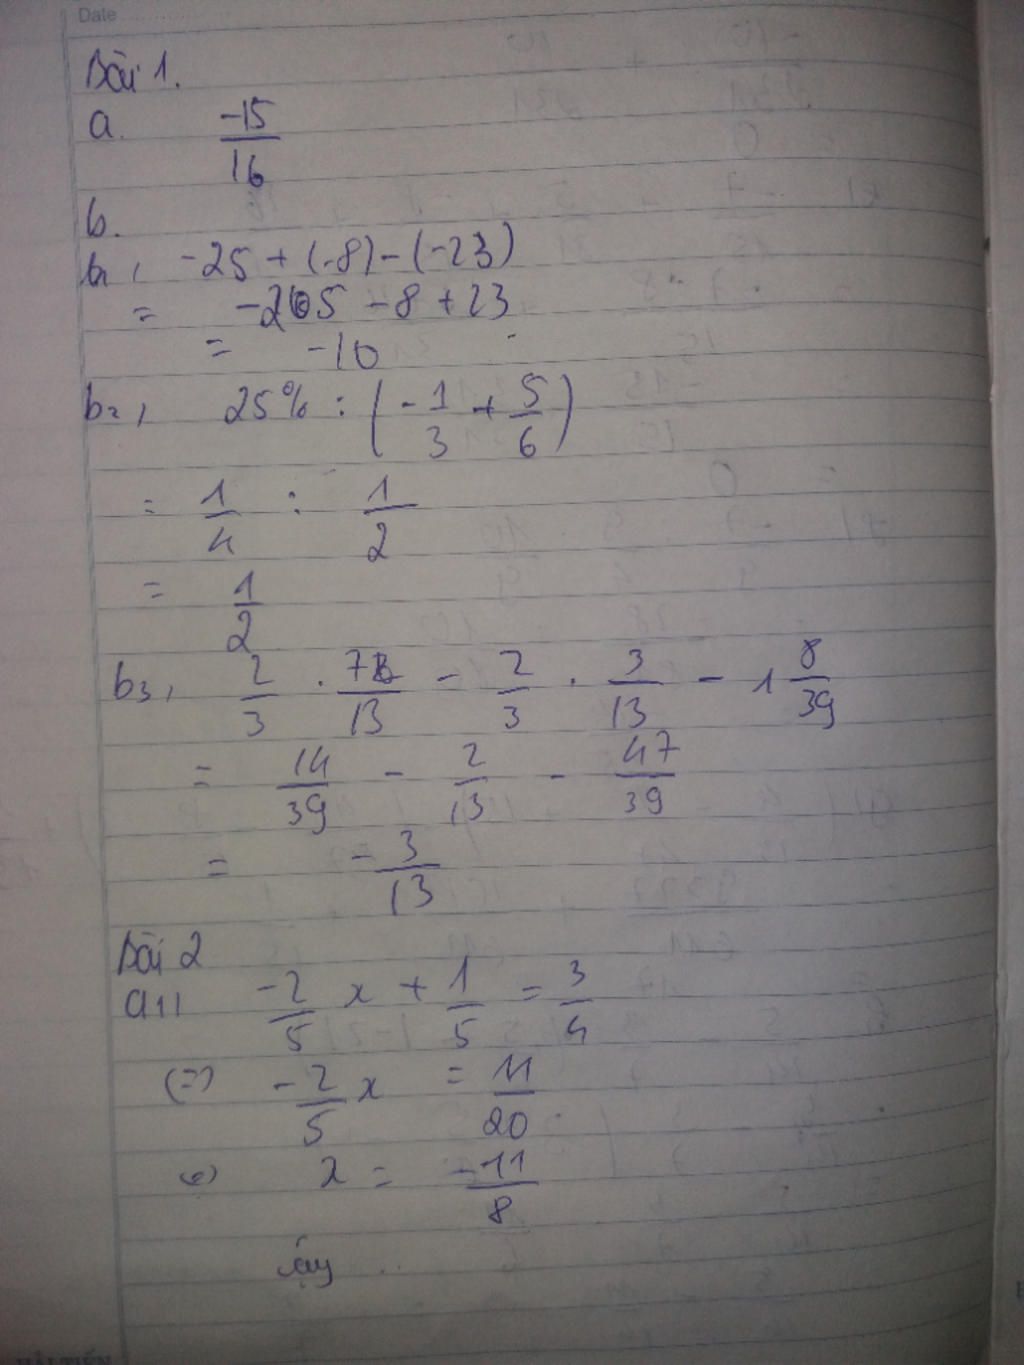 Date
Bài 1.
a. -15/16
b.
b1, -25 + (-8) - (-23)
= -25 - 8 + 23
= -10
b2, 25% : (-1/3 + 5/6)
= 1/4 : 1/2
= 1/2
b3, 2/3 . 7/13 - 2/3 . 3/13 - 1 8/39
= 14/39 - 2/13 - 47/39
= -3/13
Bài 2
a1) -2/5 x + 1/5 = 3/4
(=) -2/5 x = 11/20
x = -11/8